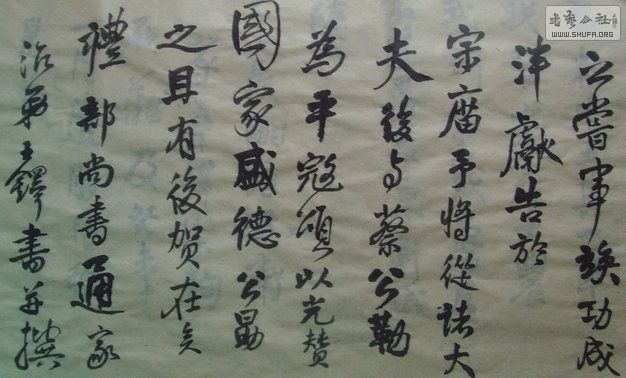 公當軍族功成
泮獻告於
宗庿予將從諸大
夫後與蔡公勒
為平寇頌以光贊
國家盛德公勗
之且有後贺在矣
禮部尚書通家
治弟王鐸書并撰
書藝公社
WWW.SHUFA.ORG